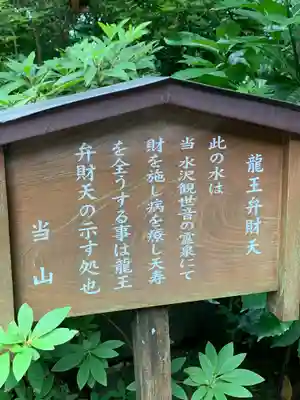 龍王弁財天
此の水は
当 水沢観世音の霊泉にて
財を施し病を療し天寿
を全うする事は龍王
弁財天の示す処也
当山